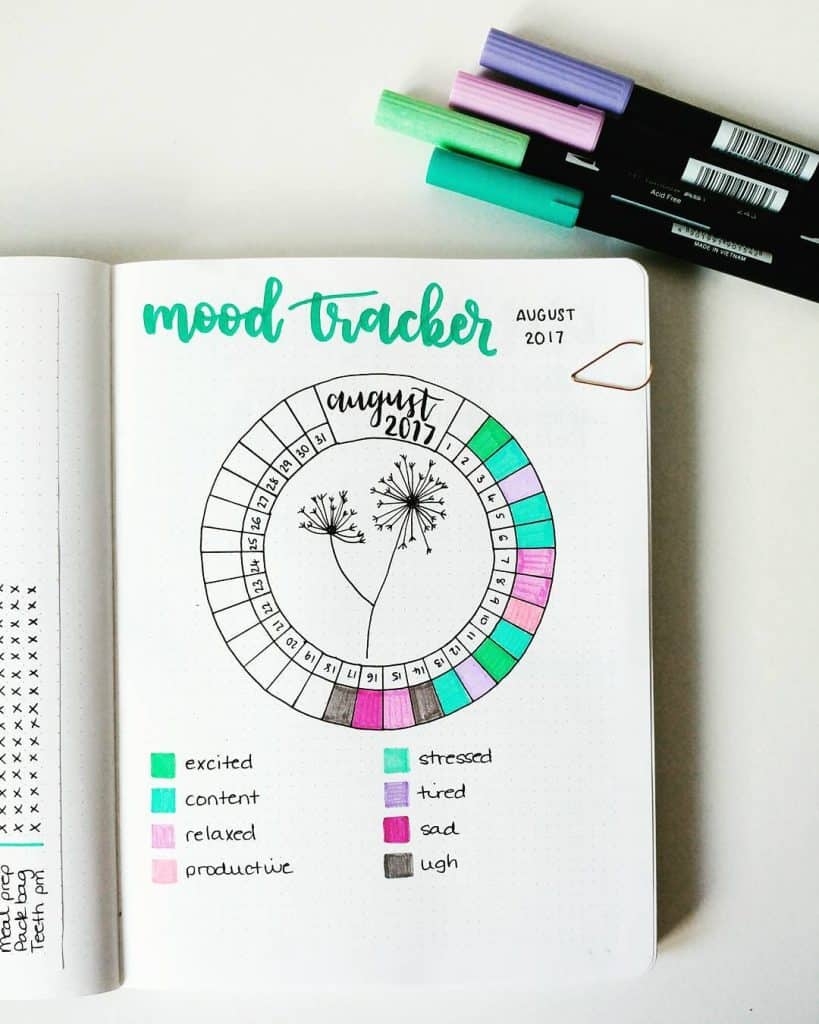 Acid Free
243
MADE IN VIETNAM
mood tracker
AUGUST
2017
august
2017
1
2
3
4
5
6
7
8
9
10
11
12
13
14
15
16
17
18
19
20
21
22
23
24
25
26
27
28
29
30
31
excited
content
relaxed
productive
stressed
tired
sad
ugh
x x x
x x x
x x x
x x x
x x x
x x x
x x x
x x x
x x x
x x x
x x x
x x x
x x x
x x x
Meal prep
Pack bag
Teeth pm